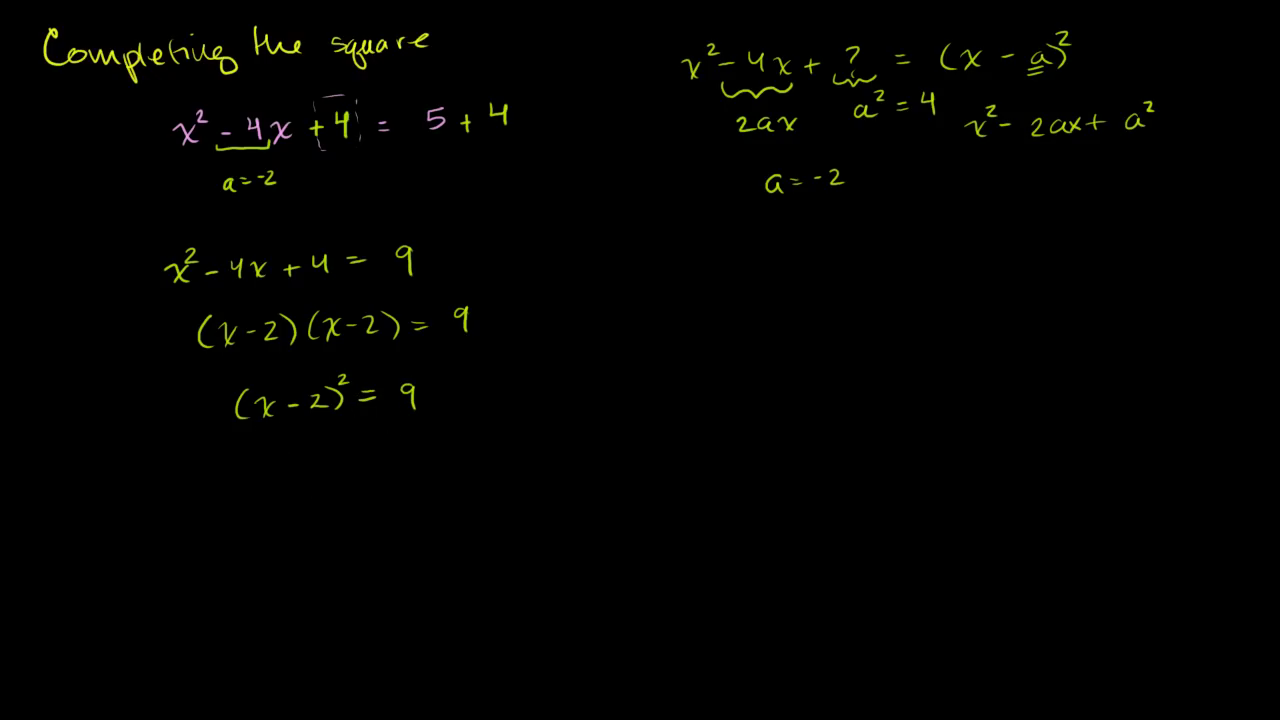 Completing the square
x² - 4x + 4 = 5 + 4
a = -2
x² - 4x + 4 = 9
(x - 2)(x - 2) = 9
(x - 2)² = 9
x² - 4x + ? = (x - a)²
2ax a² = 4 x² - 2ax + a²
a = -2